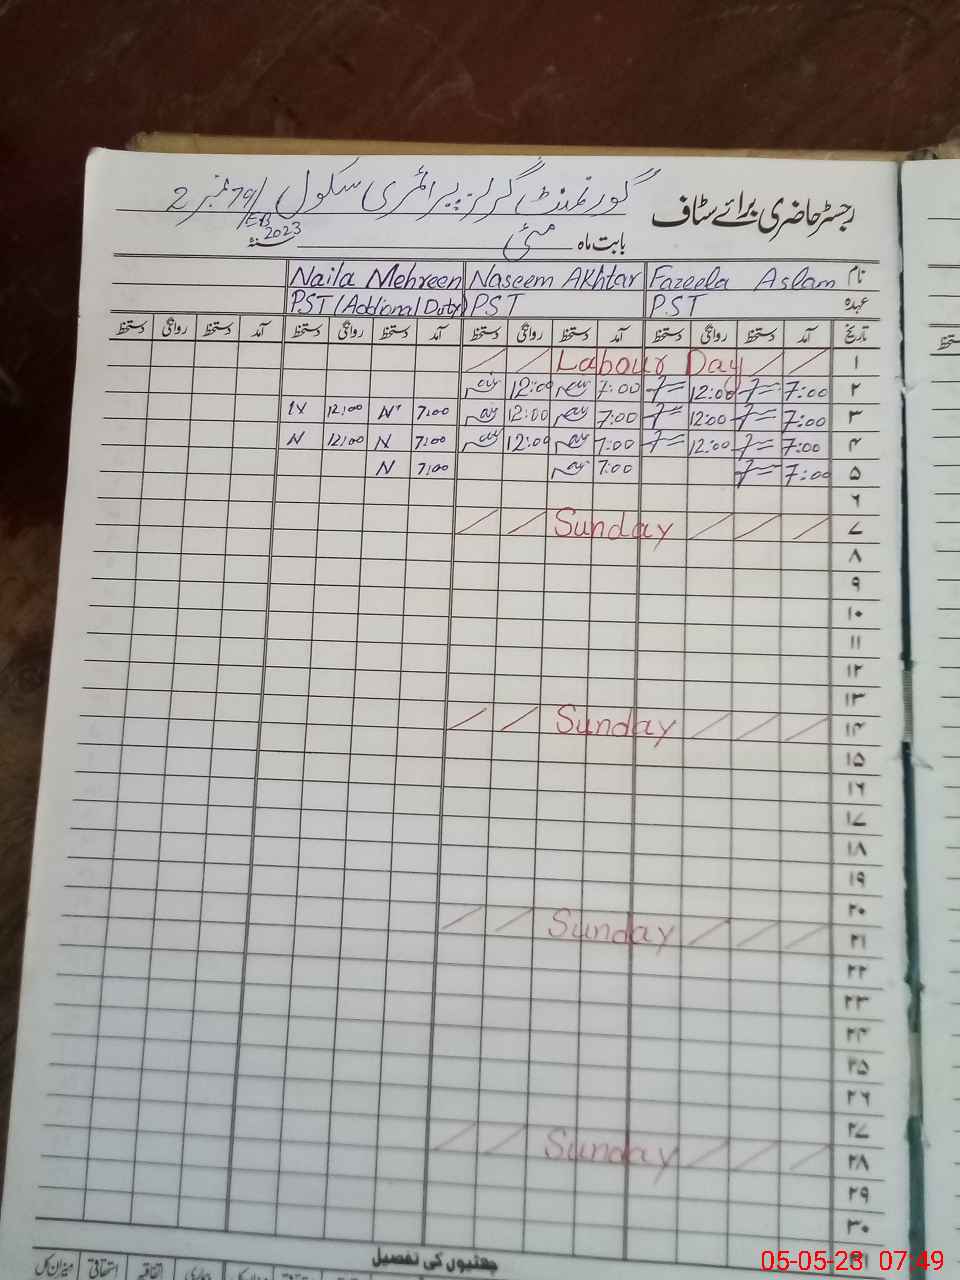 رجسٹر حاضری برائے سٹاف
گورنمنٹ گرلز پرائمری سکول 79/EB نمبر 2
بابت ماہ مئی 2023
نام Fazeela Aslam Naseem Akhtar Naila Mehreen
عہدہ PST PST PST (Addional Duty)
تاریخ آمد دستخط روانگی دستخط آمد دستخط روانگی دستخط آمد دستخط روانگی دستخط آمد دستخط روانگی دستخط
۱ Labour Day
۲ 7:00 12:00 7:00 12:00
۳ 7:00 12:00 7:00 12:00 7:00 N 12:00 N
۴ 7:00 12:00 7:00 12:00 7:00 N 12:00 N
۵ 7:00 7:00 7:00 N
۶
۷ Sunday
۸
۹
۱۰
۱۱
۱۲
۱۳
۱۴ Sunday
۱۵
۱۶
۱۷
۱۸
۱۹
۲۰
۲۱ Sunday
۲۲
۲۳
۲۴
۲۵
۲۶
۲۷
۲۸ Sunday
۲۹
۳۰
۳۱
چھٹیوں کی تفصیل
اتفاقیہ استحقاقی میزان کل
05-05-23 07:49